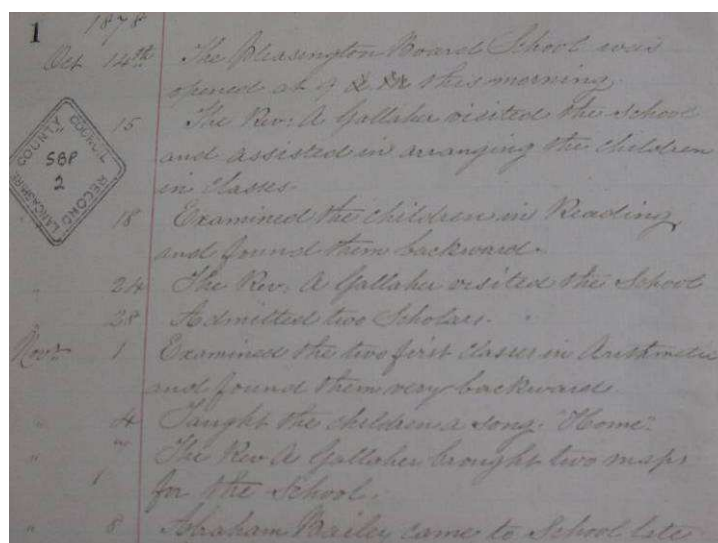 1 1878
Oct 14th The Pleasington Board School was
opened at 9 this morning.
15 The Rev. A Gallaher visited the School
and assisted in arranging the children
in Classes.
18 Examined the children in Reading
and found them backward.
" 24 The Rev. A Gallaher visited the School
28 Admitted two Scholars.
Novr 1 Examined the two first classes in Arithmetic
and found them very backward.
" 4 Taught the children a song. "Home".
" " The Rev A Gallaher brought two maps
for the School.
" 8 Abraham Bailey came to School late
LANCASHIRE COUNTY COUNCIL RECORD
SBP
2